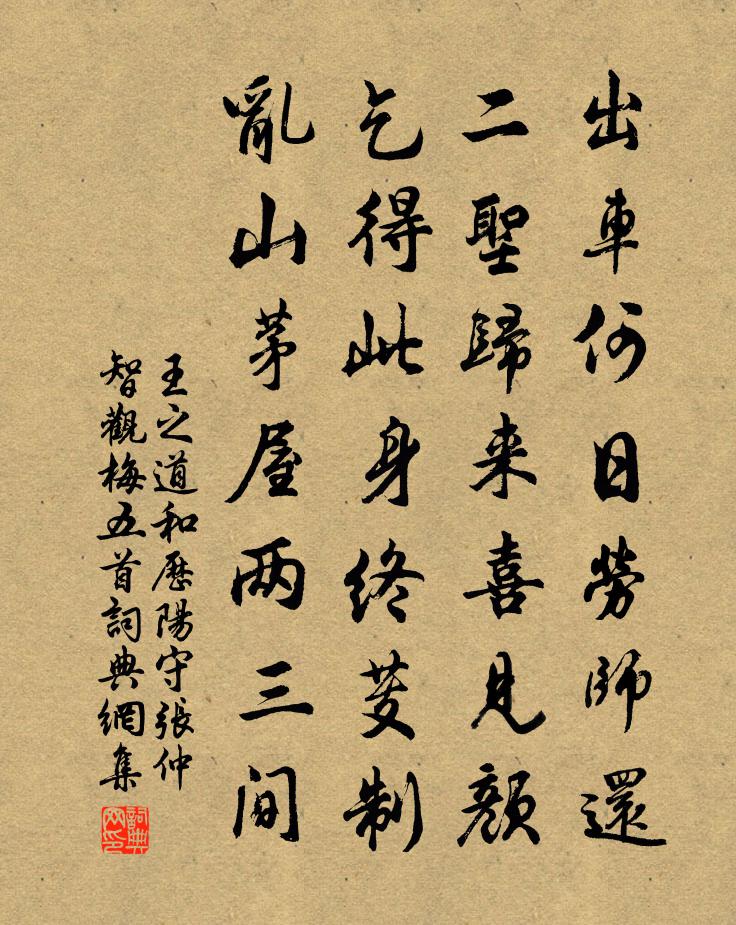 出車何日勞師還
二聖歸来喜見顏
乞得此身終芰制
亂山茅屋两三間
王之道和歷陽守張仲
智觀梅五首詞典網集
詞典
网印